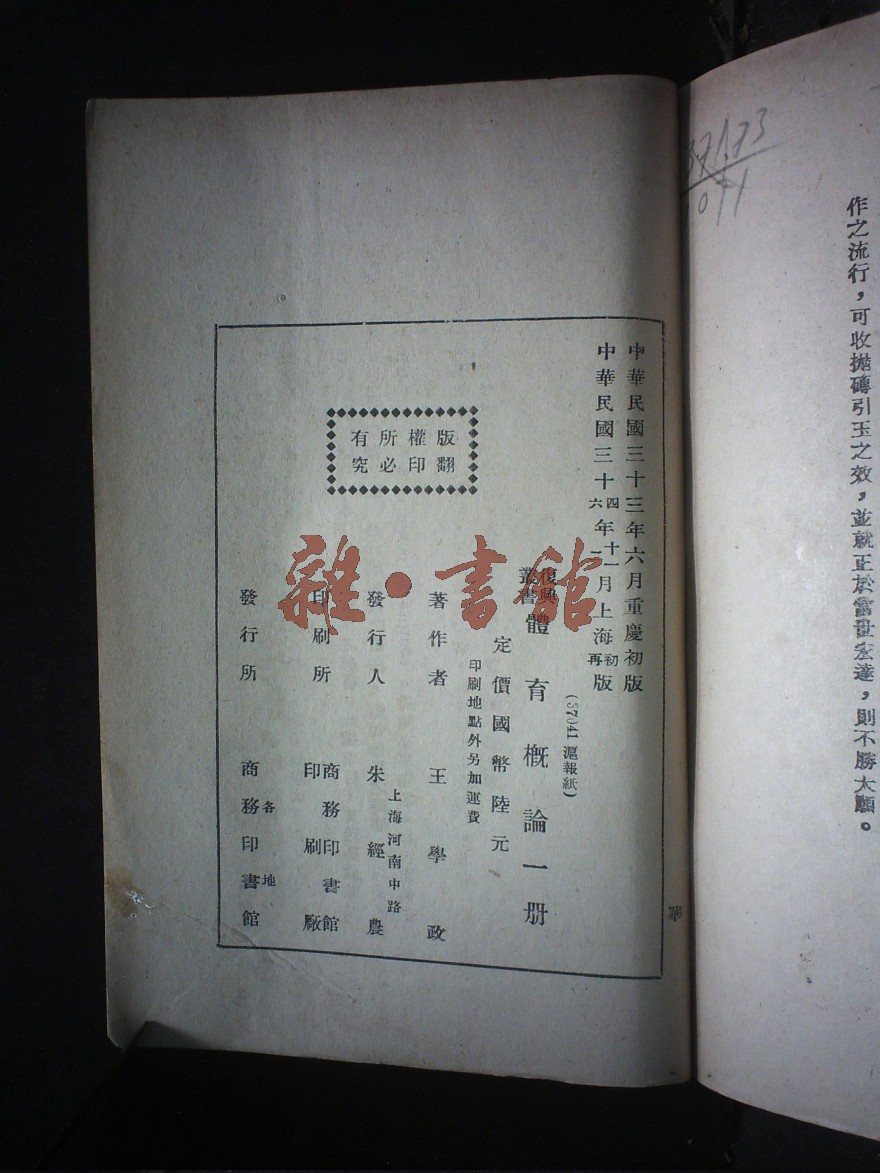 371.73
1011
作之流行，可收拋磚引玉之效，並就正於當世宏達，則不勝大願。
中華民國三十三年六月重慶初版
中華民國三十四年十一月上海初版
六 二 再
(37041滬報紙)
復興叢書 體育概論一册
定價國幣陸元
印刷地點外另加運費
著作者 王學政
上海河南中路
發行人 朱經農
印刷所 商務印書館印刷廠
發行所 各地商務印書館
版權所有
翻印必究
華
雜·書館